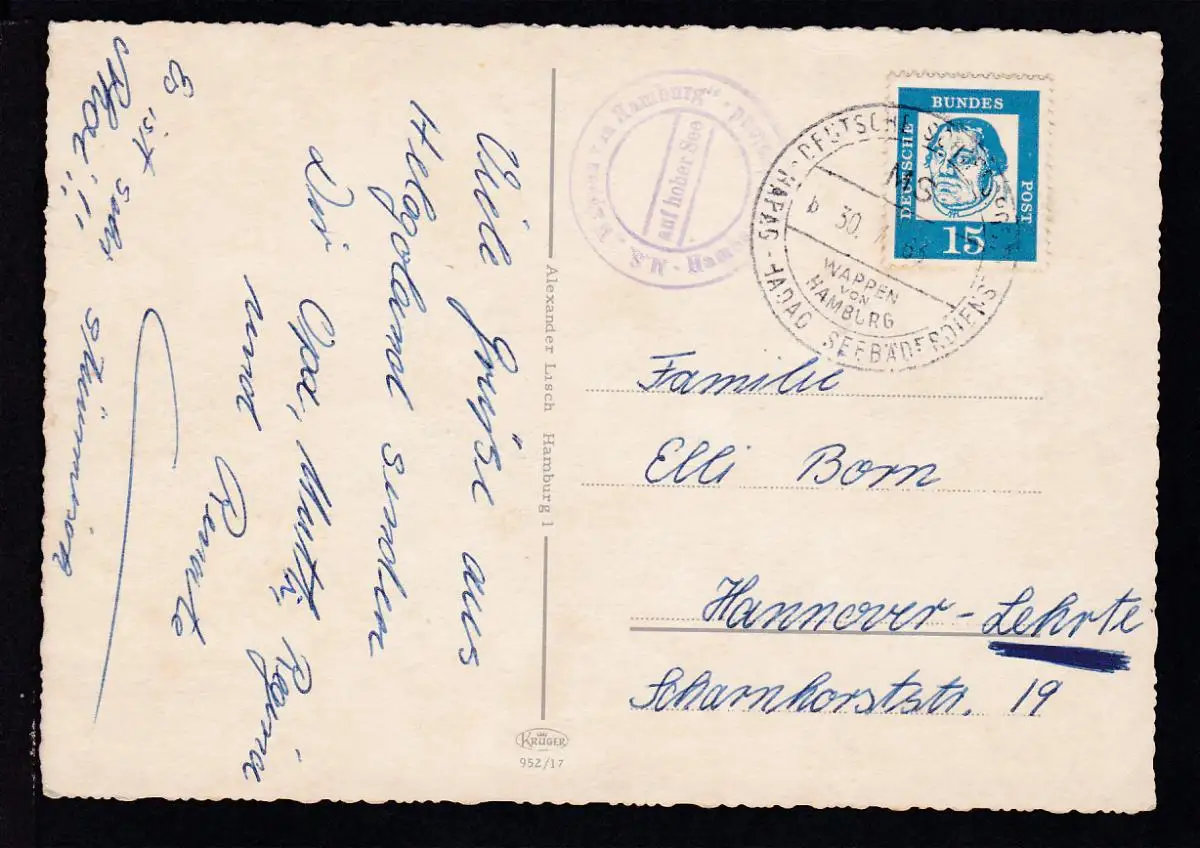 Viele Grüße aus
Helgoland senden
Dir
Opa, Mutti, Regina
und Renate
Es ist sehr
stürmisch
Alexander Lisch Hamburg 1
KRÜGER
952/17
auf hoher See
DEUTSCHE BUNDESPOST
15
DEUTSCHE
MS
b 30.
WAPPEN
VON
HAMBURG
HAPAG-HADAG SEEBÄDERDIENST
Familie
Elli Born
Hannover-Lehrte
Scharnhorststr. 19